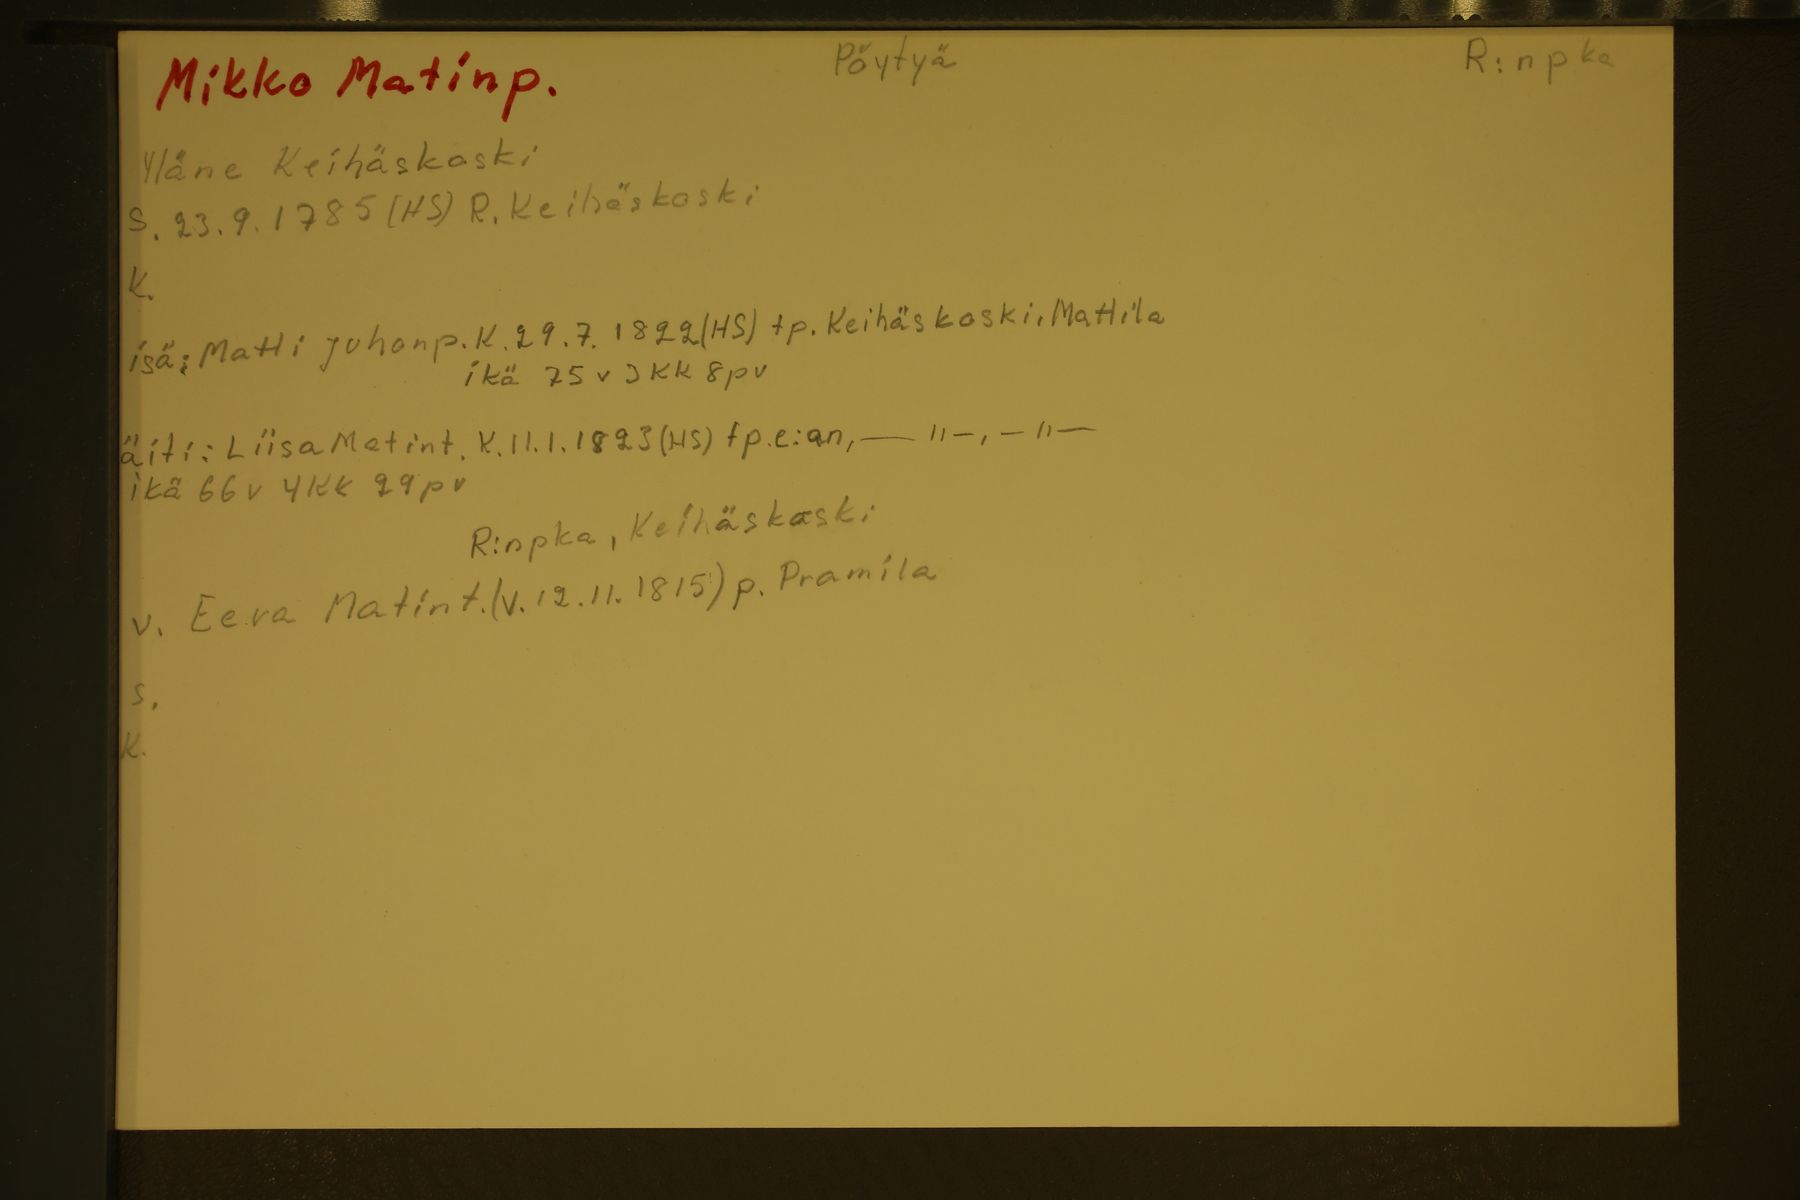 Mikko Matinp. Pöytyä R:npka
Yläne Keihäskoski
S. 23.9.1785 (HS) R. Keihäskoski
K.
isä: Matti Juhonp. K. 29.7.1822 (HS) tp. Keihäskoski, Mattila
ikä 75 v 3 KK 8 pv
äiti: Liisa Matint. K. 11.1.1823 (HS) tp. e:an, — " —, — " —
ikä 66 v 4 KK 29 pv
R:npka, Keihäskoski
v. Eeva Matint. (v. 12.11.1815) p. Pramila
S.
K.